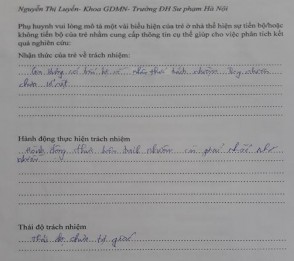 Nguyễn Thị Luyến- Khoa GDMN- Trường ĐH Sư phạm Hà Nội
Phụ huynh vui lòng mô tả một vài biểu hiện của trẻ ở nhà thể hiện sự tiến bộ/hoặc
không tiến bộ của trẻ nhằm cung cấp thông tin cụ thể giúp cho việc phân tích kết
quả nghiên cứu:
Nhận thức của trẻ về trách nhiệm:
trách nhiệm
chưa rõ rệt
Hành động thực hiện trách nhiệm
Hành động thực hiện trách nhiệm còn phải nhắc
nhiều
Thái độ trách nhiệm
Thái độ chưa tự giác